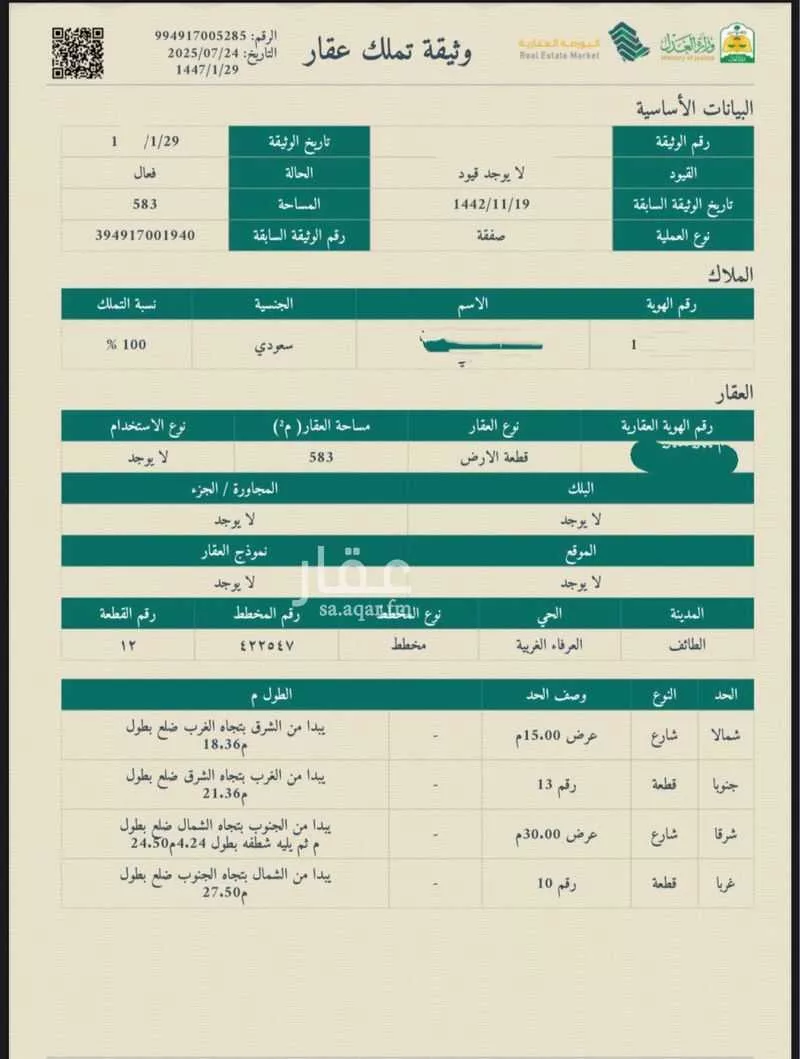 وزارة العدل
Ministry of Justice
البورصة العقارية
Real Estate Market
وثيقة تملك عقار
الرقم: 994917005285
التاريخ: 2025/07/24
1447/1/29
البيانات الأساسية
رقم الوثيقة تاريخ الوثيقة 1/29/ 1
القيود لا يوجد قيود الحالة فعال
تاريخ الوثيقة السابقة 1442/11/19 المساحة 583
نوع العملية صفقة رقم الوثيقة السابقة 394917001940
الملاك
رقم الهوية الاسم الجنسية نسبة التملك
1 سعودي 100 %
العقار
رقم الهوية العقارية نوع العقار مساحة العقار( م²) نوع الاستخدام
قطعة الارض 583 لا يوجد
البلك المجاورة / الجزء
لا يوجد لا يوجد
الموقع نموذج العقار
لا يوجد لا يوجد
عقار
sa.aqar.fm
المدينة الحي نوع المخطط رقم المخطط رقم القطعة
الطائف العرفاء الغربية مخطط ٤٢٢٥٤٧ ١٢
الحد النوع وصف الحد الطول م
شمالا شارع عرض 15.00م - يبدا من الشرق بتجاه الغرب ضلع بطول
18.36م
جنوبا قطعة رقم 13 - يبدا من الغرب بتجاه الشرق ضلع بطول
21.36م
شرقا شارع عرض 30.00م - يبدا من الجنوب بتجاه الشمال ضلع بطول
م ثم يليه شطفه بطول 4.24م24.50
غربا قطعة رقم 10 - يبدا من الشمال بتجاه الجنوب ضلع بطول
27.50م